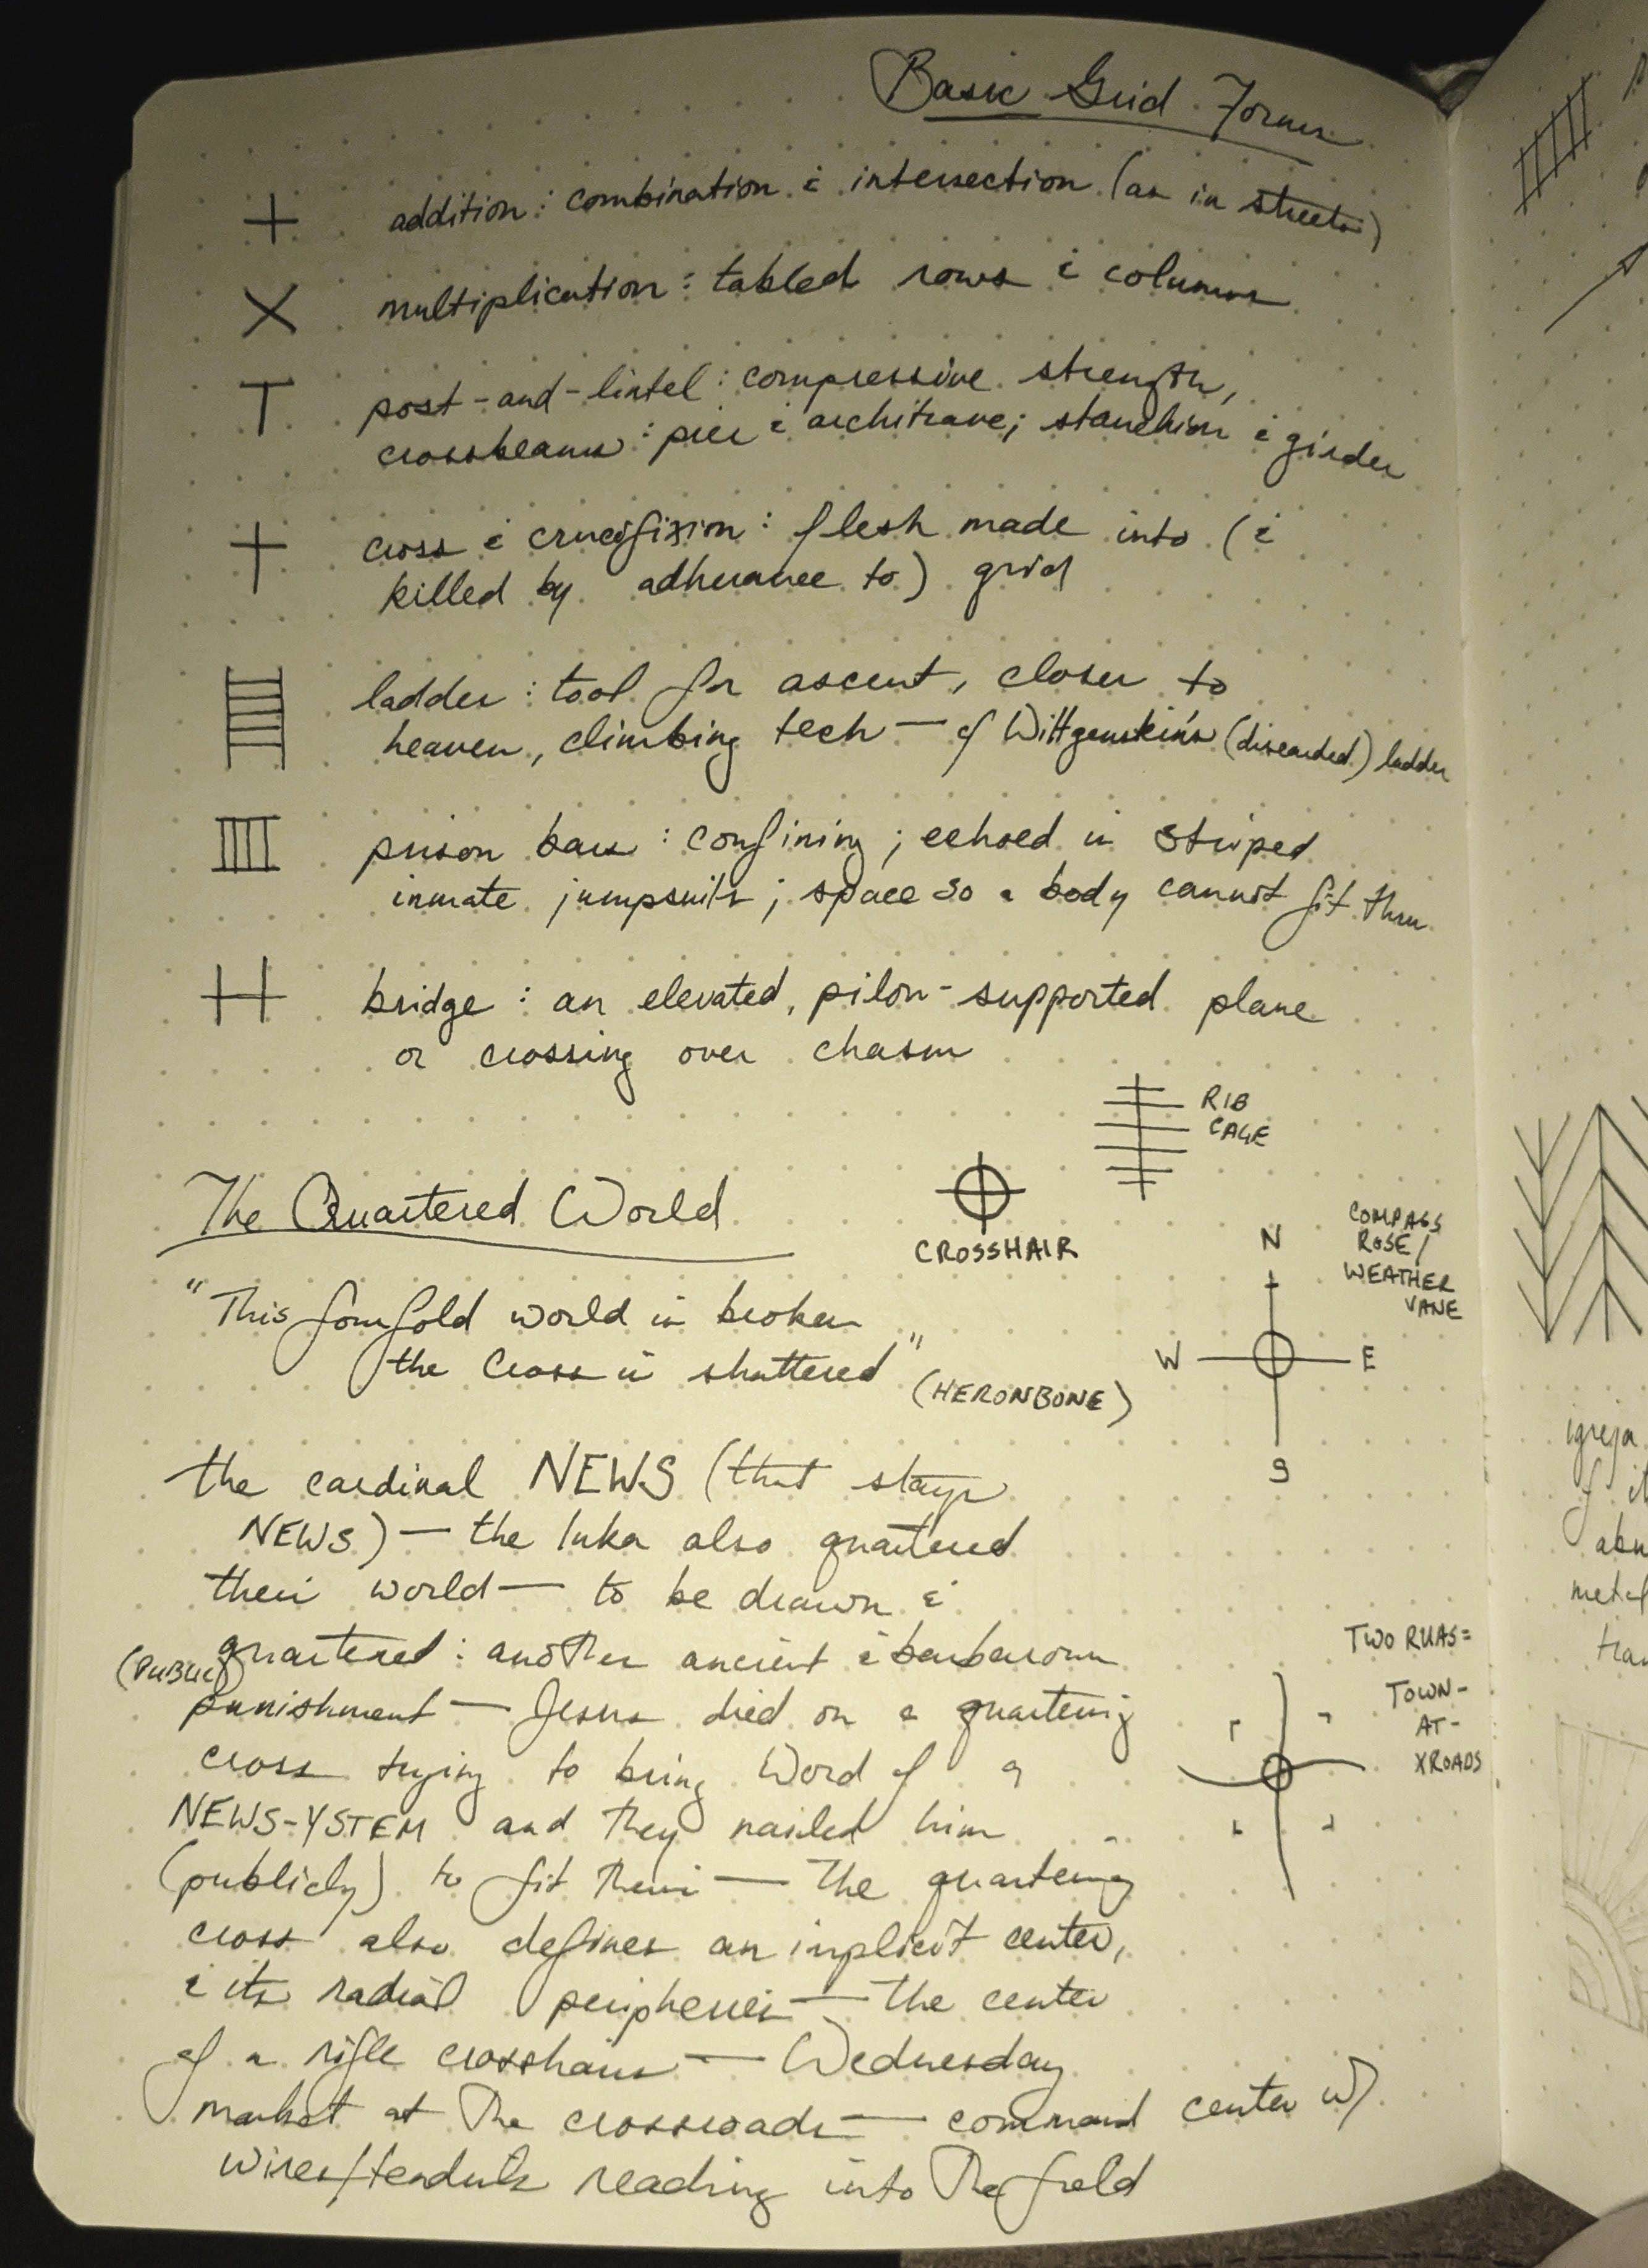 Basic Grid Forms
+ addition: combination & intersection (as in streets)
× multiplication: tabled rows & columns
T post-and-lintel: compressive strength,
crossbeams: pier & architrave; stanchion & girder
† cross & crucifixion: flesh made into (&
killed by adherance to) grid
ladder: tool for ascent, closer to
heaven, climbing tech — cf Wittgenstein's (discarded) ladder
prison bars: confining; echoed in striped
inmate jumpsuits; space so a body cannot fit thru
bridge: an elevated, pilon-supported plane
or crossing over chasm
RIB
CAGE
The Quartered World
CROSSHAIR
COMPASS
ROSE/
WEATHER
VANE
N
W E
S
"This fourfold world is broken
the Cross is shattered"
(HERONBONE)
the cardinal NEWS (that stays
NEWS) — the Inka also quartered
their world — to be drawn &
quartered: another ancient & barbarous
(PUBLIC)
punishment — Jesus died on a quartering
cross trying to bring Word of a
NEWS-YSTEM and they nailed him
(publicly) to fit their — the quartering
cross also defines an implicit center,
& its radial peripheries — the center
of a rifle crosshairs — Wednesday
market at the crossroads — command center w/
wires/tendrils reading into the field
TWO RUAS=
TOWN-
AT-
XROADS
igreja
of it
metal